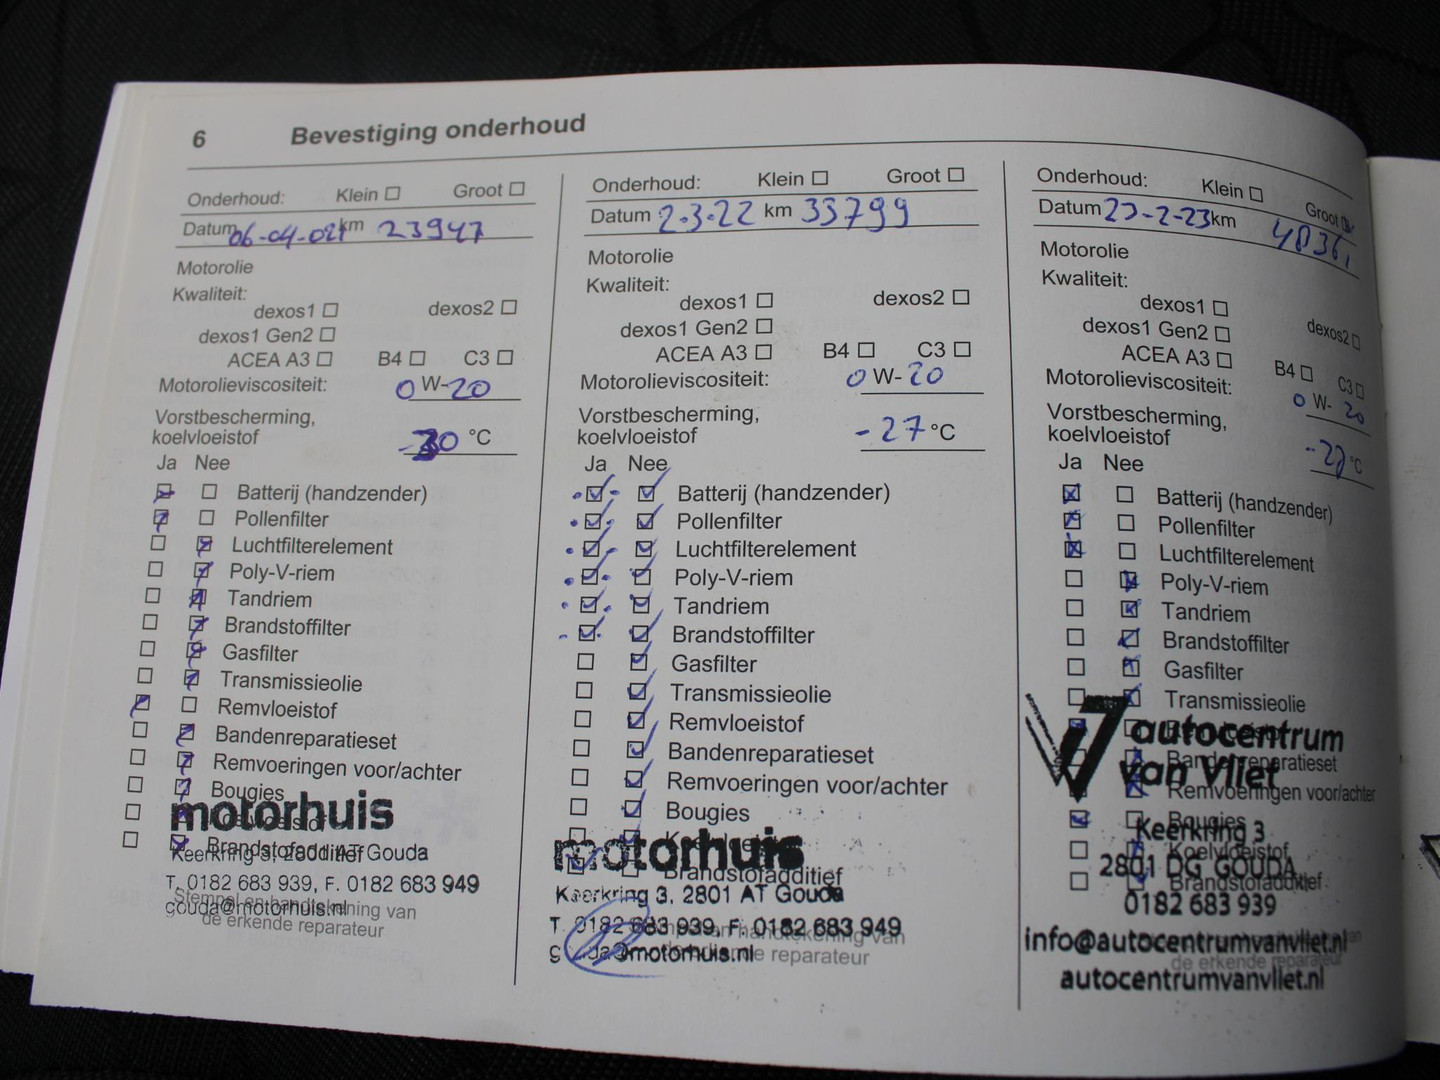 6 Bevestiging onderhoud
Onderhoud: Klein Groot
Datum 06-04-021 km 23947
Motorolie
Kwaliteit:
dexos1 dexos2
dexos1 Gen2
ACEA A3 B4 C3
Motorolieviscositeit: 0 W-20
Vorstbescherming,
koelvloeistof -30 °C
Ja Nee
Batterij (handzender)
Pollenfilter
Luchtfilterelement
Poly-V-riem
Tandriem
Brandstoffilter
Gasfilter
Transmissieolie
Remvloeistof
Bandenreparatieset
Remvoeringen voor/achter
Bougies
motorhuis
Brandstofadditief
Keerkring 3, 2801 AT Gouda
T. 0182 683 939, F. 0182 683 949
gouda@motorhuis.nl
Stempel en handtekening van
de erkende reparateur
Onderhoud: Klein Groot
Datum 2-3-22 km 33799
Motorolie
Kwaliteit:
dexos1 dexos2
dexos1 Gen2
ACEA A3 B4 C3
Motorolieviscositeit: 0 W-20
Vorstbescherming,
koelvloeistof -27 °C
Ja Nee
Batterij (handzender)
Pollenfilter
Luchtfilterelement
Poly-V-riem
Tandriem
Brandstoffilter
Gasfilter
Transmissieolie
Remvloeistof
Bandenreparatieset
Remvoeringen voor/achter
Bougies
Koelvloeistof
motorhuis
Brandstofadditief
Keerkring 3, 2801 AT Gouda
T. 0182 683 939, F. 0182 683 949
gouda@motorhuis.nl
en handtekening van
de erkende reparateur
Onderhoud: Klein Groot
Datum -2-23 km
Motorolie
Kwaliteit:
dexos1 dexos2
dexos1 Gen2
ACEA A3 B4 C3
Motorolieviscositeit: 0 W-20
Vorstbescherming,
koelvloeistof °C
Ja Nee
Batterij (handzender)
Pollenfilter
Luchtfilterelement
Poly-V-riem
Tandriem
Brandstoffilter
Gasfilter
Transmissieolie
Remvloeistof
autocentrum
Bandenreparatieset
van Vliet
Remvoeringen voor/achter
Bougies
Keerkring 3
Koelvloeistof
2801 DG GOUDA
Brandstofadditief
0182 683 939
info@autocentrumvanvliet.nl
de erkende reparateur
autocentrumvanvliet.nl